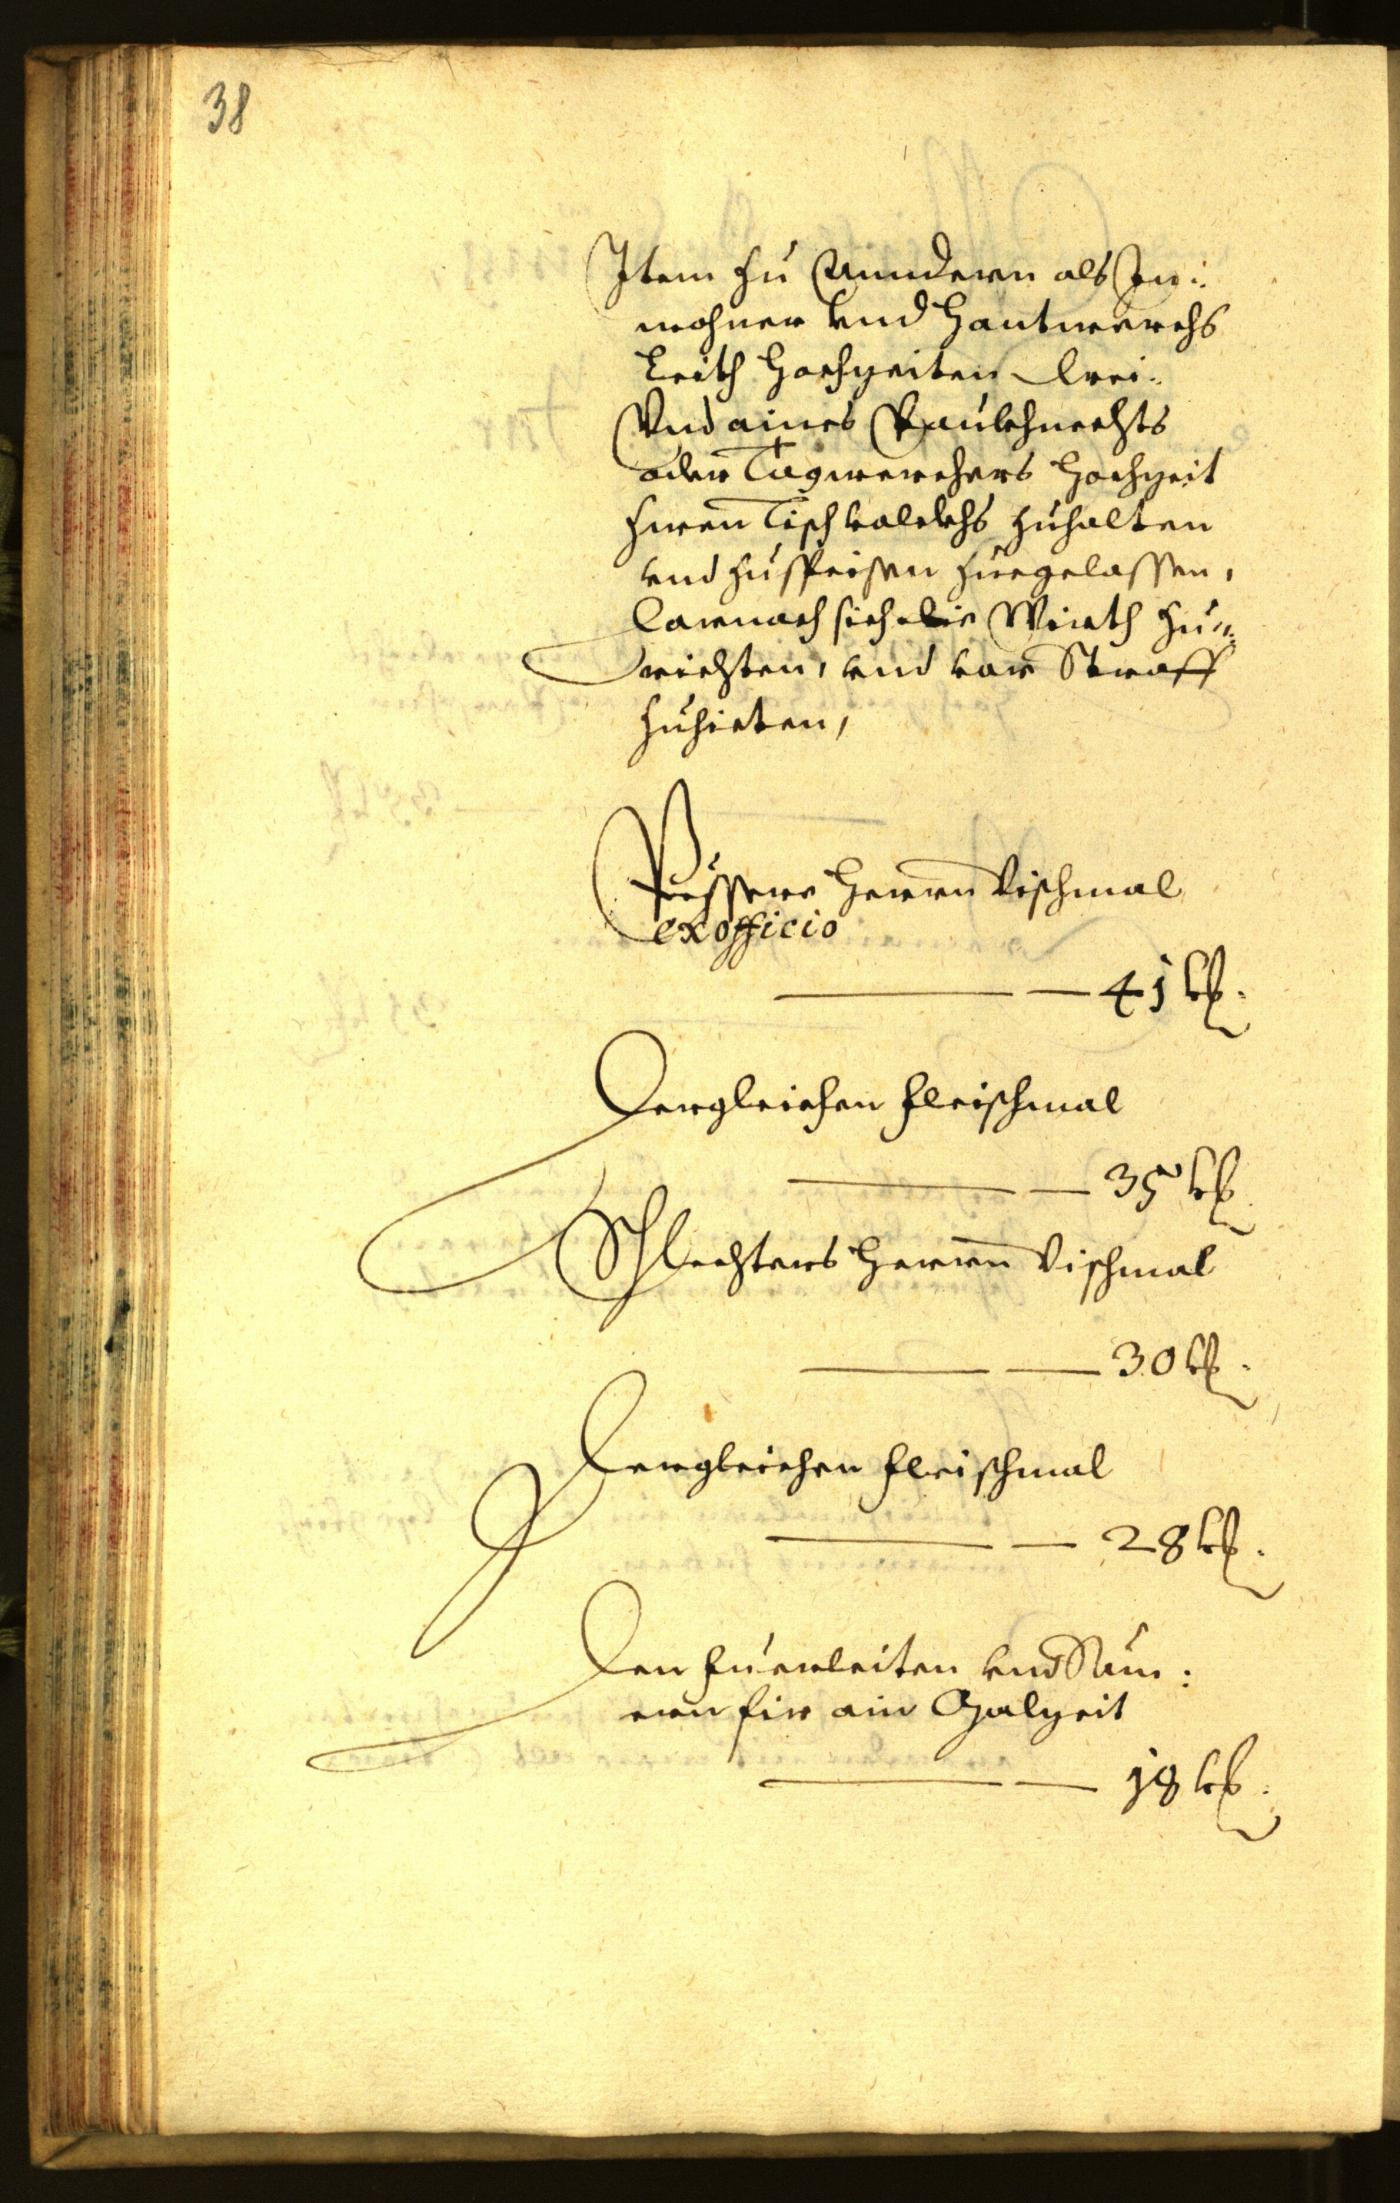 38
Item zu Mindern als In-
wohner vnd Hantwerchs
Leith Hochzeiten drei.
Vnd aines Paukhnechts
oder Tagwerchers Hochzeit
zwen Tisch volckhs zuhalten
vnd zuspeisen zuegelassen,
darnach sich die Wirth zu-
richten, vnd vor Straff
zuhieten,
Pessers Herrn Vischmal
ex officio
41 kr.
Dergleichen Fleischmal
35 kr.
Schlechters Herrn Vischmal
30 kr.
Dergleichen Fleischmal
28 kr.
Den Fuerleiten vnd Säm-
ern fir ain Malzeit
18 kr.